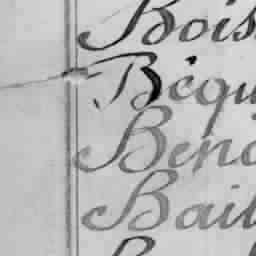 Bois
Béqu
Beno
Bail